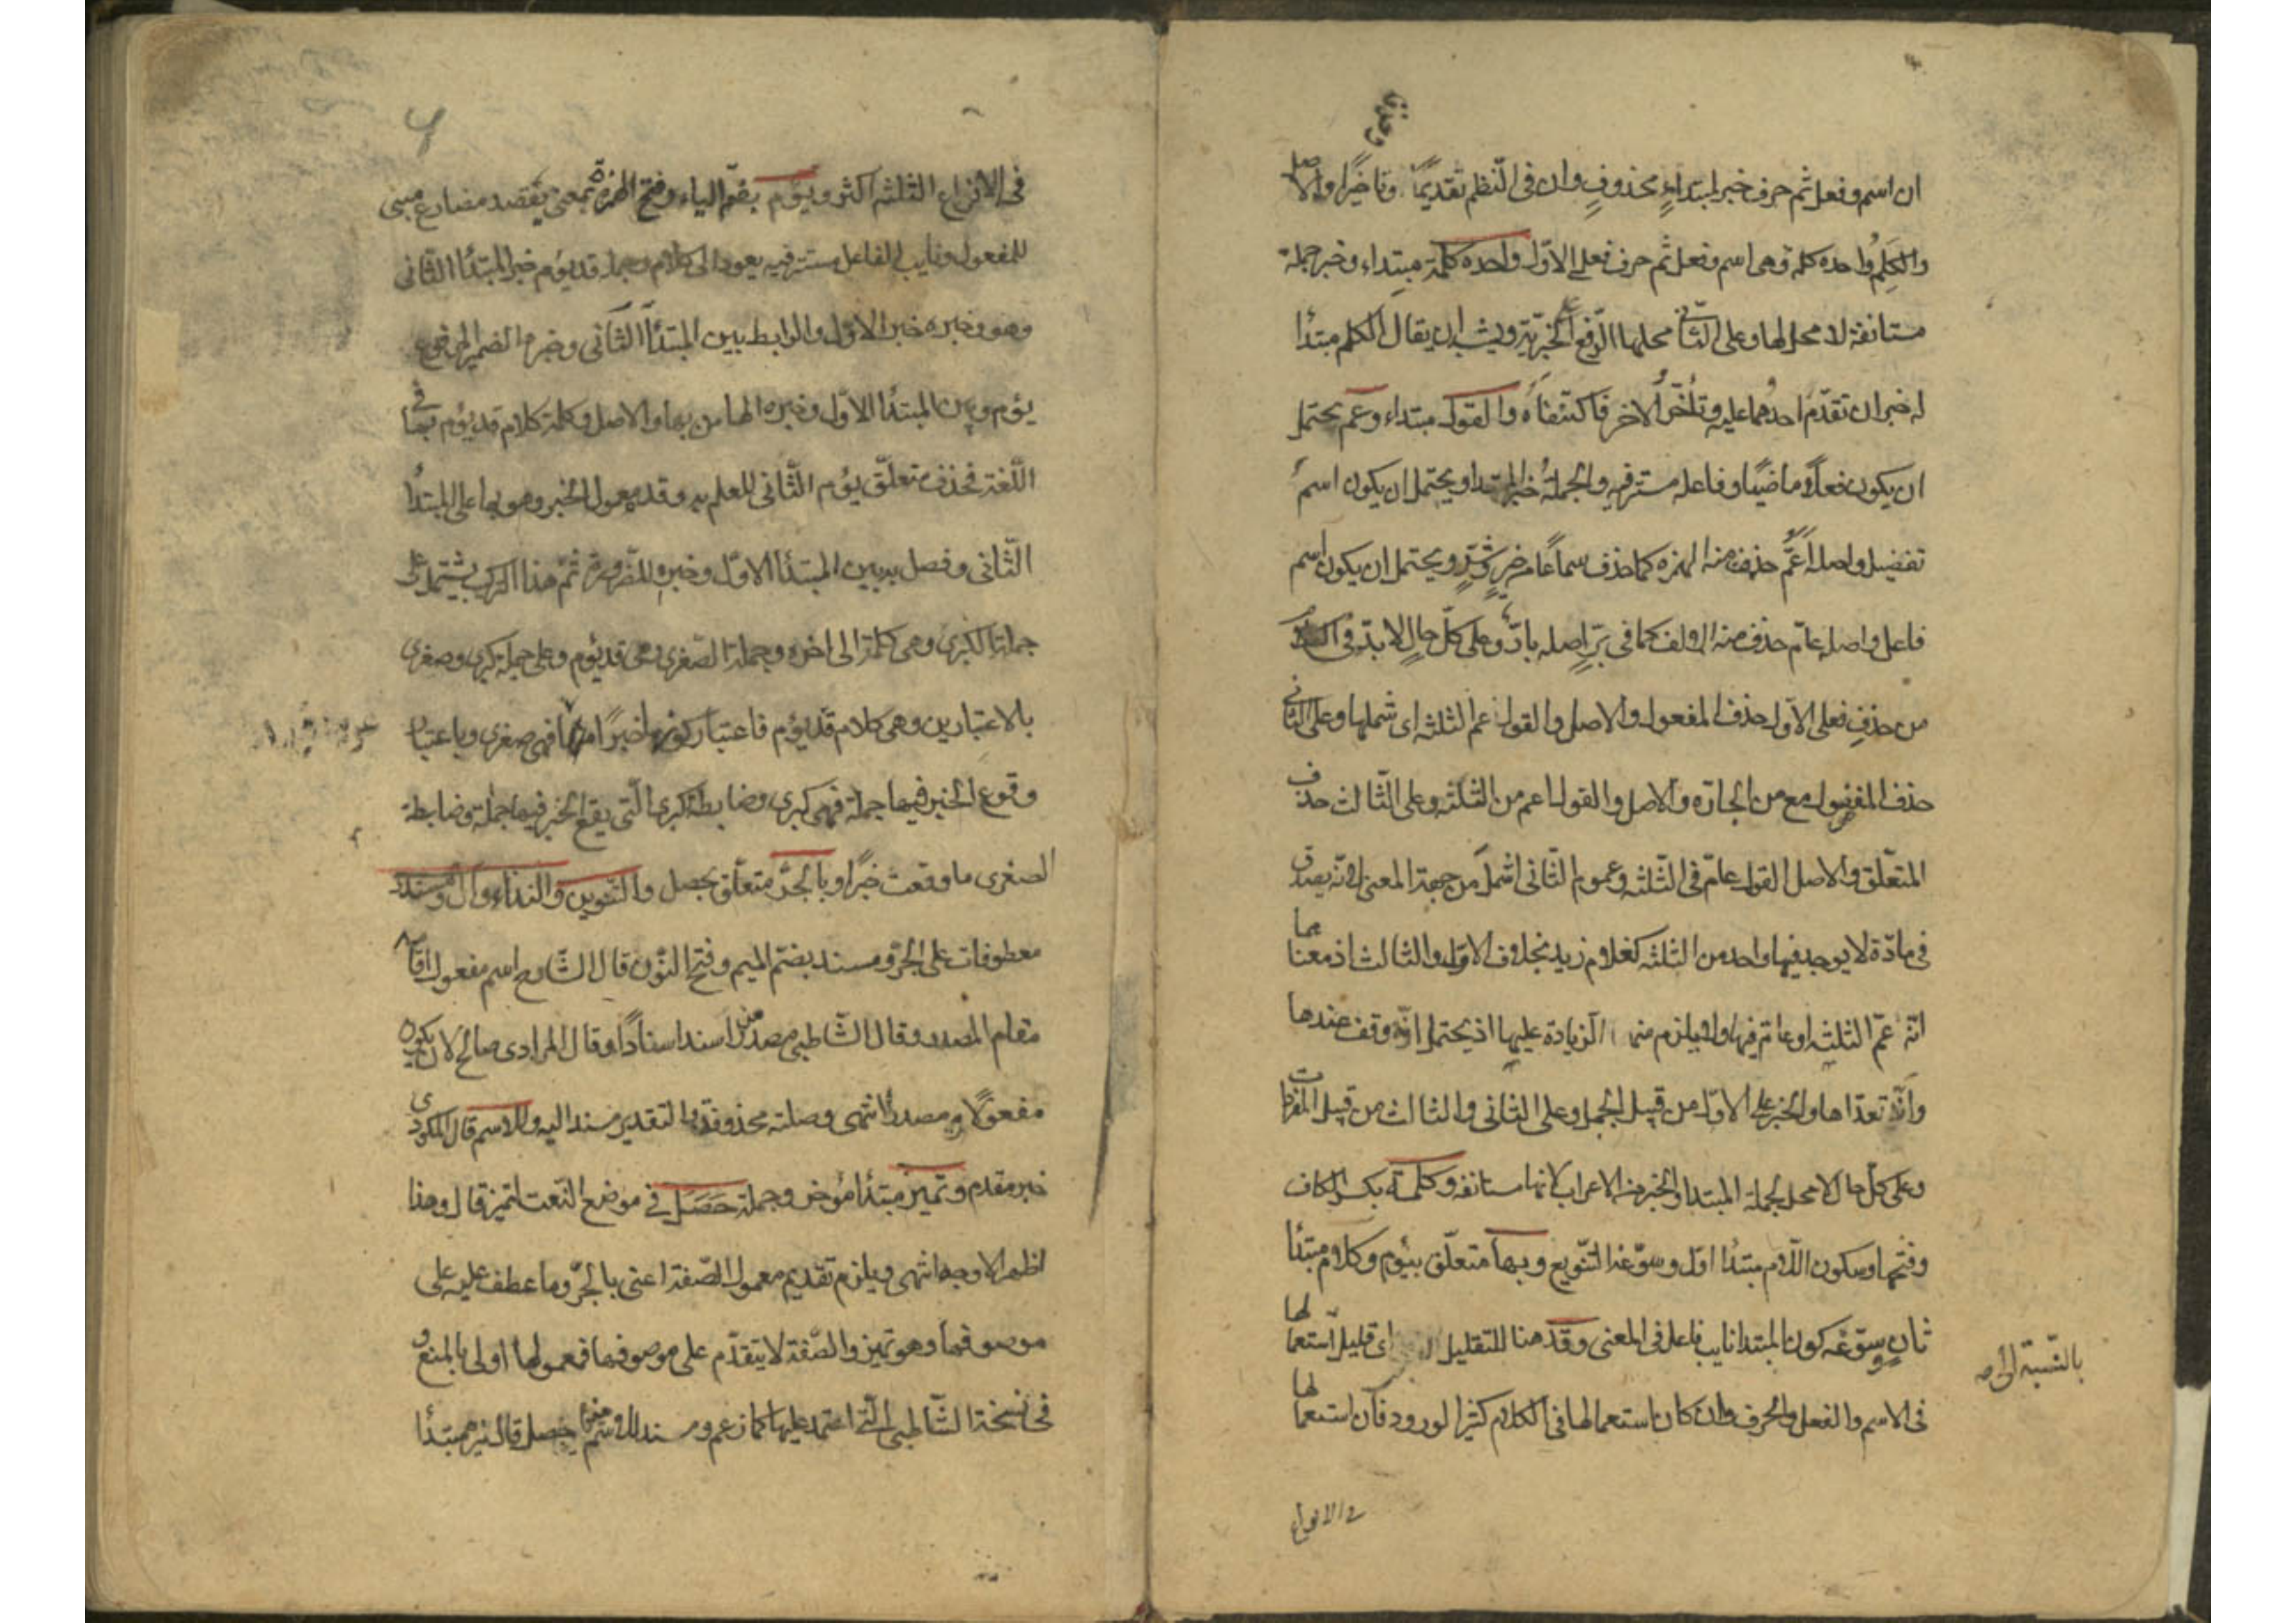 وحذفا
ان اسم وفعل ثم حرف خبر لمبتداءٍ محذوفٍ وان في النظم تقديمًا وتاخيرًا والاصل
والكَلِمُ واحده كلمة وهي اسم وفعل ثم حرف فعلي الاول واحده كلمة مبتداء وخبر جملة
مستانفة لا محل لها وعلى الثاني محلها الرفع على الخبرية ويشبه ان يقال الكلم مبتدأ
له خبران تقدّم احدُهما عليه وتأخّرُ الاخر فاكتنفاه والقول مبتداء وعم يحتمل
ان يكون فعلاً ماضيًا وفاعله مستتر فيه والجملة خبر المبتدا ويحتمل ان يكون اسمُ
تفضيل واصله أعمُّ حذفت منه الهمزه كما حذف سماعًا من خيرٍ وشرٍّ ويحتمل ان يكون اسم
فاعل واصله عامّ حذف منه الالف كما في برٍّ اصله بارّ وعلى كلّ حالٍ لا بدّ في
من حذفٍ فعلى الاول حذف المفعول والاصل والقول عم الثلثه اى شملها وعلى الثاني
حذف المفضول مع من الجارّه والاصل والقول اعم من الثلثه وعلى الثالث حذف
المتعلّق والاصل القول عامّ في الثلثه وعموم الثاني اشمل من جهة المعنى لانّه يصدق
في مادّة لا يوجد فيها واحد من الثلثه كغلام زيد بخلاف الاول والثالث اذ معناهما
انّه عمّ الثلثه او عام فيها ولا يلزم منه الزيادة عليها اذ يحتمل انّه وقف عندها
وانّه تعدّاها والخبر على الاول من قبيل الجمل وعلى الثاني والثالث من قبيل المفردات
وعلى كل حال لا محل لجملة المبتدا والخبر من الاعراب لانها مستانفه وكلمة بكسر الكاف
وفتحها وسكون اللام مبتدأ اول وسوّغه التنويع وبها متعلّق بيؤم وكلام مبتدأ
ثانٍ وسوّغه كون المبتدا نايب فاعل في المعنى وقد هنا للتقليل اى قليل استعمالها
بالنّسبة الى
في الاسم والفعل والحرف وان كان استعمالها في الكلام كثيرا لورود فان استعمالها
في الانواع
في الانواع الثلثه اكثر ويؤم بضمّ الياء وفتح الهمزة بمعنى يُقصد مضارع مبنى
للمفعول ونايب الفاعل مستتر فيه يعود الى كلام وجملة قد يؤم خبر المبتدأ الثّانى
وهو وخبره خبر الاول والرابط بين المبتدأ الثّانى وخبره الضمير المرفوع
يؤم وبين المبتدأ الاول وخبره الها من بها والاصل وكلمة كلام قد يؤم بها في
اللّغة فحذف متعلّق يؤم الثّانى للعلم به وقدم معمول الخبر وهو بها على المبتدأ
الثّانى وفصل به بين المبتدأ الاوّل وخبره للضّرورة ثمّ هذا التركيب يشتمل على
جملة الكبرى وهي كلمة الى اخره وجملة الصّغرى وهى قد يؤم وعلى جملة كبرى وصغرى
بالاعتبارين وهى كلام قد يؤم فاعتبار كونها خبرًا فهى صغرى وباعتبار
وقوع الخبر فيها جملة فهى كبرى وضابط الكبرى الّتى يقع الخبر فيها جملة وضابطة
الصغرى ما وقعت خبرًا وبالجرّ متعلّق بحصل والتّنوين والنداء وال ومسند
معطوفات على الجرّ ومسند بضمّ الميم وفتح النّون قال الشّارح اسم مفعول اقامه
مقام المصدر وقال الشّاطبى مصدر من اسند اسنادًا وقال المرادى صالح لان يكون
مفعولًا ومصدرًا انتهى وصلته محذوفة والتقدير مسند اليه وللاسم قال المكودى
خبر مقدم وتمييز مبتدأ مؤخر وجملة حَصَل في موضع النّعت لتمييز قال وهذا
اظهر الاوجه انتهى ويلزم تقديم معمول الصّفة اعنى بالجرّ وما عطف عليه على
موصوفها وهو تمييز والصّفة لا يتقدّم على موصوفها فمعمولها اولى بالمنع و
في نسخة الشّاطبى الّتى اعتمد عليها كما زعم ومسند للاسم حصل قال تمييز مبتدأ